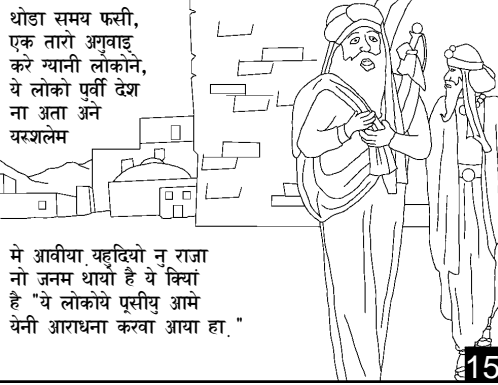 थोडा समय फसी,
एक तारो अगुवाइ
करे ग्यानी लोकोने,
ये लोको पुर्वी देश
ना अता अने
यरुशलेम
मे आवीया.यहुदियो नु राजा
नो जनम थायो है ये कियां
है "ये लोकोये पूसीयु आमे
येनी आराधना करवा आया हा."
15